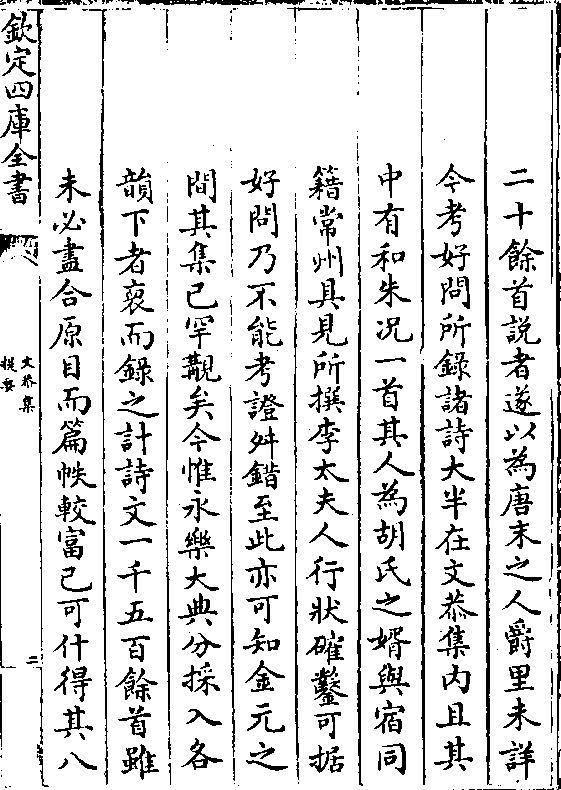 二十餘首説者遂以為唐末之人爵里未詳
今考好問所錄諸詩大半在文恭集内且其
中有和朱况一首其人為胡氏之婿與宿同
籍常州具見所撰李太夫人行狀確鑿可据
好問乃不能考證舛錯至此亦可知金元之
間其集已罕觀矣今惟永樂大典分採入各
韻下者裒而錄之計詩文一千五百餘首雖
未必盡合原目而篇帙較富已可什得其八
欽定四庫全書
文恭集
提要
二